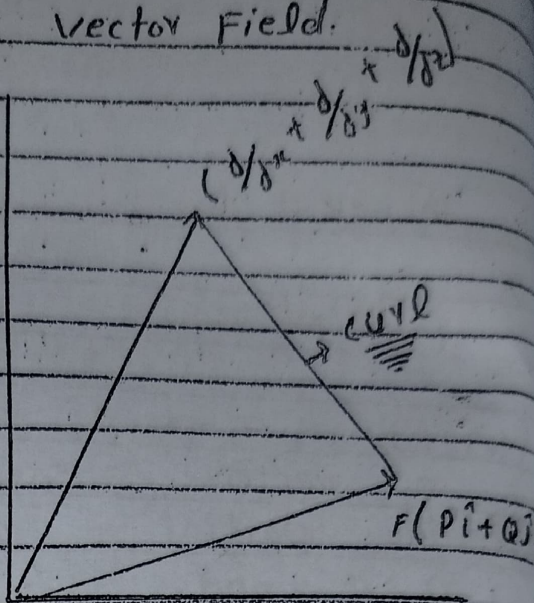 Vector Field.
(∂/∂x + ∂/∂y + ∂/∂z)
curl
F(Pi+Qj